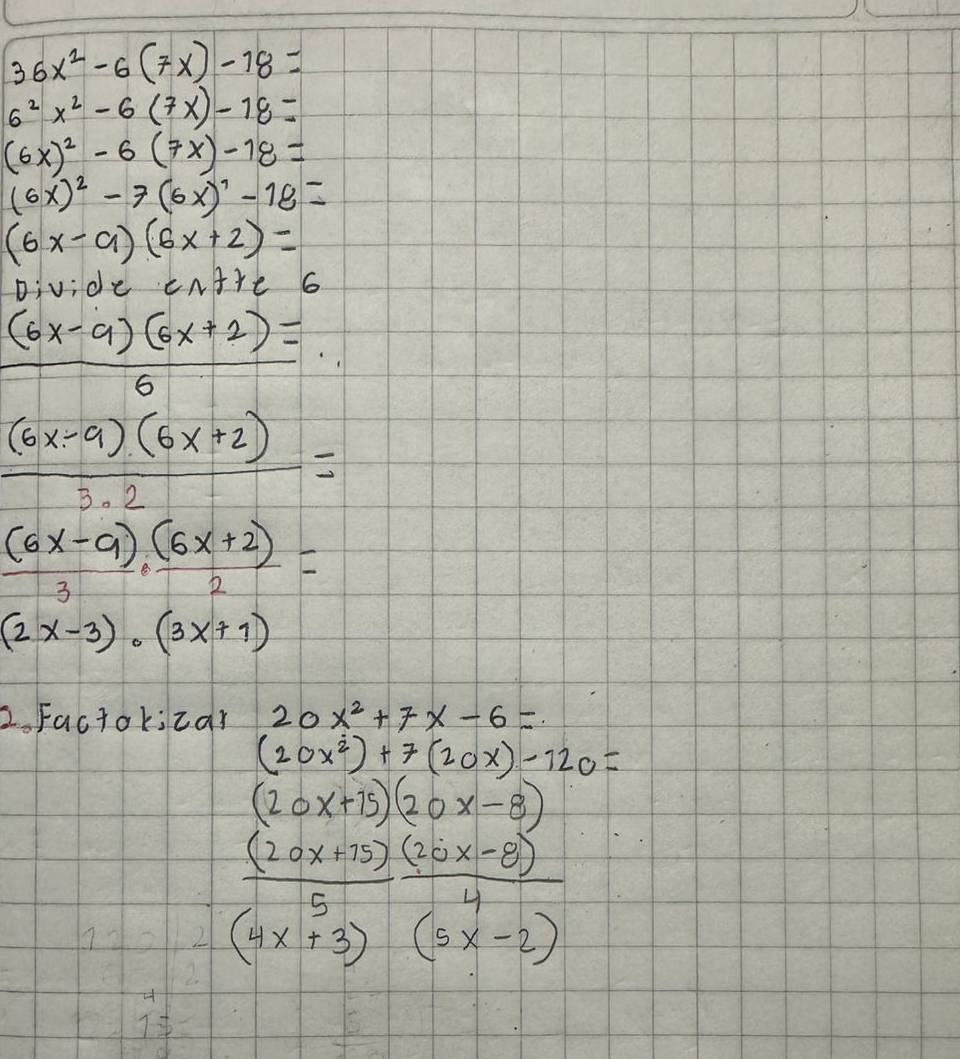 36x² - 6(7x) - 18 =
6² x² - 6(7x) - 18 =
(6x)² - 6(7x) - 18 =
(6x)² - 7(6x)¹ - 18 =
(6x - 9)(6x + 2) =
Divide entre 6
(6x - 9)(6x + 2) =
6
(6x - 9).(6x + 2) =
3.2
(6x - 9) . (6x + 2) =
3 2
(2x - 3) . (3x + 1)
2. Factorizar 20x² + 7x - 6 =
(20x²) + 7(20x) - 120 =
(20x + 15)(20x - 8)
(20x + 15) (20x - 8)
5 4
(4x + 3) (5x - 2)